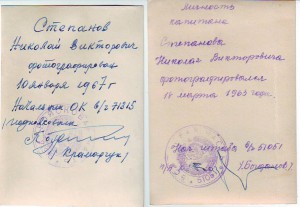 Степанов
Николай Викторович
фотографирован
10 января 1967 г
Начальник ОК в/ч 71315
Личность
капитана
Степанова
Николая Викторовича
фотографировался
марта 1965 года.
Нач штаба в/ч 51051